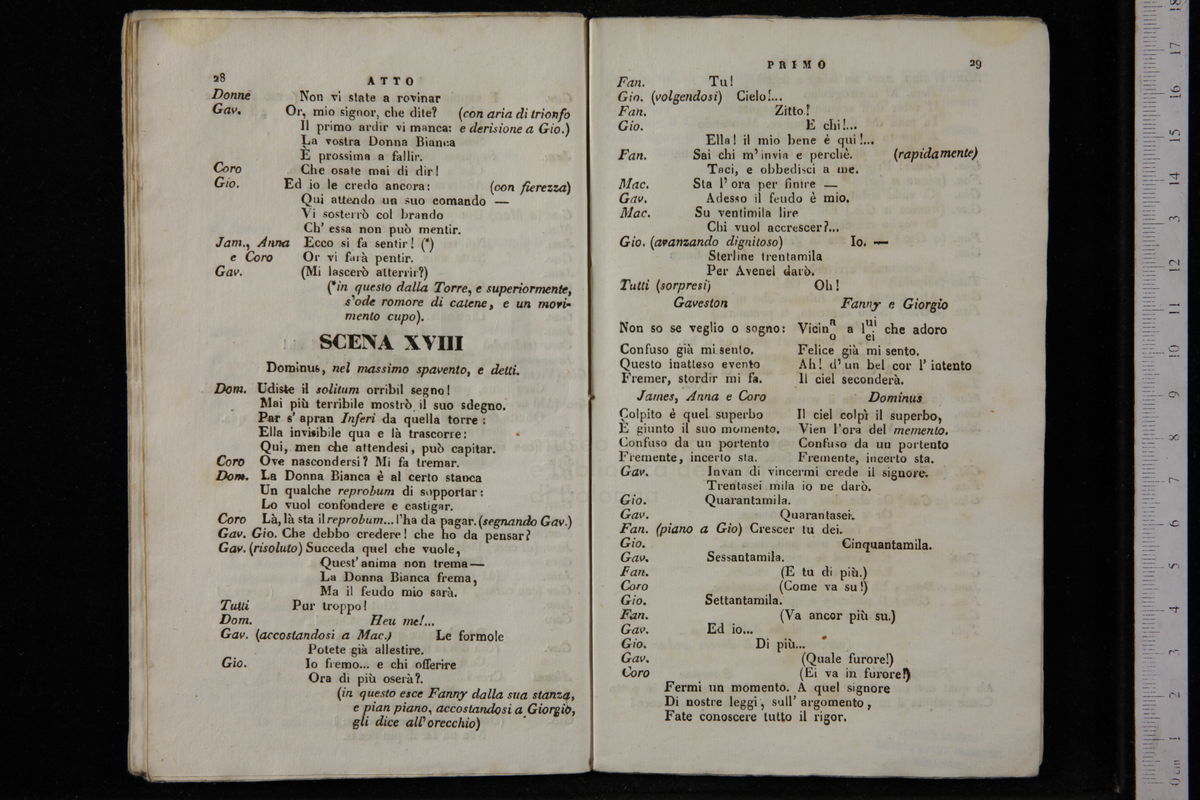 28
ATTO
Donne Non vi state a rovinar
Gav. Or, mio signor, che dite? (con aria di trionfo
Il primo ardir vi manca: e derisione a Gio.)
La vostra Donna Bianca
È prossima a fallir.
Coro Che osate mai di dir!
Gio. Ed io le credo ancora: (con fierezza)
Qui attendo un suo comando —
Vi sosterrò col brando
Ch' essa non può mentir.
Jam., Anna Ecco si fa sentir! (*)
e Coro Or vi farà pentir.
Gav. (Mi lascerò atterrir?)
(*in questo dalla Torre, e superiormente,
s'ode romore di catene, e un movi-
mento cupo).
SCENA XVIII
Dominus, nel massimo spavento, e detti.
Dom. Udiste il solitum orribil segno!
Mai più terribile mostrò il suo sdegno.
Par s' apran Inferi da quella torre:
Ella invisibile qua e là trascorre:
Qui, men che attendesi, può capitar.
Coro Ove nascondersi? Mi fa tremar.
Dom. La Donna Bianca è al certo stanca
Un qualche reprobum di sopportar:
Lo vuol confondere e castigar.
Coro Là, là sta il reprobum... l'ha da pagar. (segnando Gav.)
Gav. Gio. Che debbo credere! che ho da pensar?
Gav. (risoluto) Succeda quel che vuole,
Quest' anima non trema —
La Donna Bianca frema,
Ma il feudo mio sarà.
Tutti Pur troppo!
Dom. Heu me!...
Gav. (accostandosi a Mac.) Le formole
Potete già allestire.
Gio. Io fremo... e chi offerire
Ora di più oserà?.
(in questo esce Fanny dalla sua stanza,
e pian piano, accostandosi a Giorgio,
gli dice all' orecchio)
PRIMO
29
Fan. Tu!
Gio. (volgendosi) Cielo!...
Fan. Zitto!
Gio. E chi!...
Ella! il mio bene è qui!...
Fan. Sai chi m' invia e perchè. (rapidamente)
Taci, e obbedisci a me.
Mac. Sta l' ora per finire —
Gav. Adesso il feudo è mio.
Mac. Su ventimila lire
Chi vuol accrescer?...
Gio. (avanzando dignitoso) Io. —
Sterline trentamila
Per Avenel darò.
Tutti (sorpresi) Oh!
Gaveston Fanny e Giorgio
Non so se veglio o sogno: Vicin a/o a lui/lei che adoro
Confuso già mi sento. Felice già mi sento.
Questo inatteso evento Ah! d' un bel cor l' intento
Fremer, stordir mi fa. Il ciel seconderà.
James, Anna e Coro Dominus
Colpito è quel superbo Il ciel colpì il superbo,
È giunto il suo momento. Vien l'ora del memento.
Confuso da un portento Confuso da un portento
Fremente, incerto sta. Fremente, incerto sta.
Gav. Invan di vincermi crede il signore.
Trentasei mila io ne darò.
Gio. Quarantamila.
Gav. Quarantasei.
Fan. (piano a Gio) Crescer tu dei.
Gio. Cinquantamila.
Gav. Sessantamila.
Fan. (E tu di più.)
Coro (Come va su!)
Gio. Settantamila.
Fan. (Va ancor più su.)
Gav. Ed io...
Gio. Di più...
Gav. (Quale furore!)
Coro (Ei va in furore!)
Fermi un momento. A quel signore
Di nostre leggi, sull' argomento,
Fate conoscere tutto il rigor.